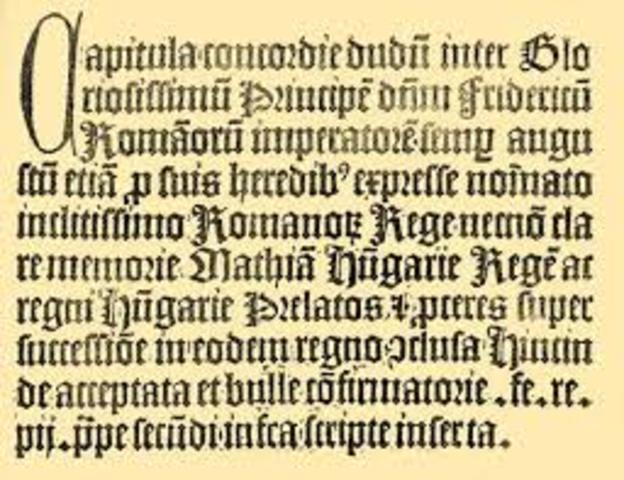 Capitula concordie dudū inter Glo
riosissimū Principē dn̄m Fridericū
Romāorū imperatorē semꝑ augu
stū etiā ꝓ suis heredibꝰ expresse noīato
inclitissimo Romanoꝝ Rege necnō cla
re memorie Mathiā Hūgarie Regē ac
regni Hūgarie Prelatos ⁊ ꝓceres super
successiōe in eodem regno ꝯclusa Hincin
de acceptata et bulle cōfirmatorie . fe . re .
pij . p̄pe secūdi infca scripte inserta .